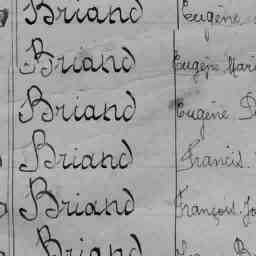 Briand Eugène
Briand Eugène Marie
Briand Eugène
Briand Francis
Briand François
Briand